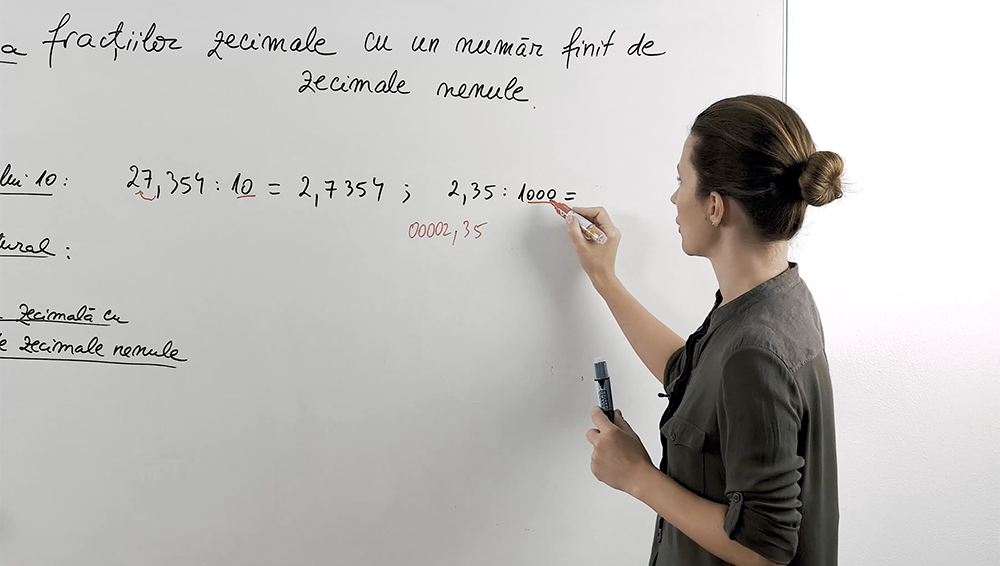 a fracțiilor zecimale cu un număr finit de
zecimale nenule.
lui 10:
27,354 : 10 = 2,7354 ; 2,35 : 1000 =
00002,35
tural :
zecimală cu
e zecimale nenule